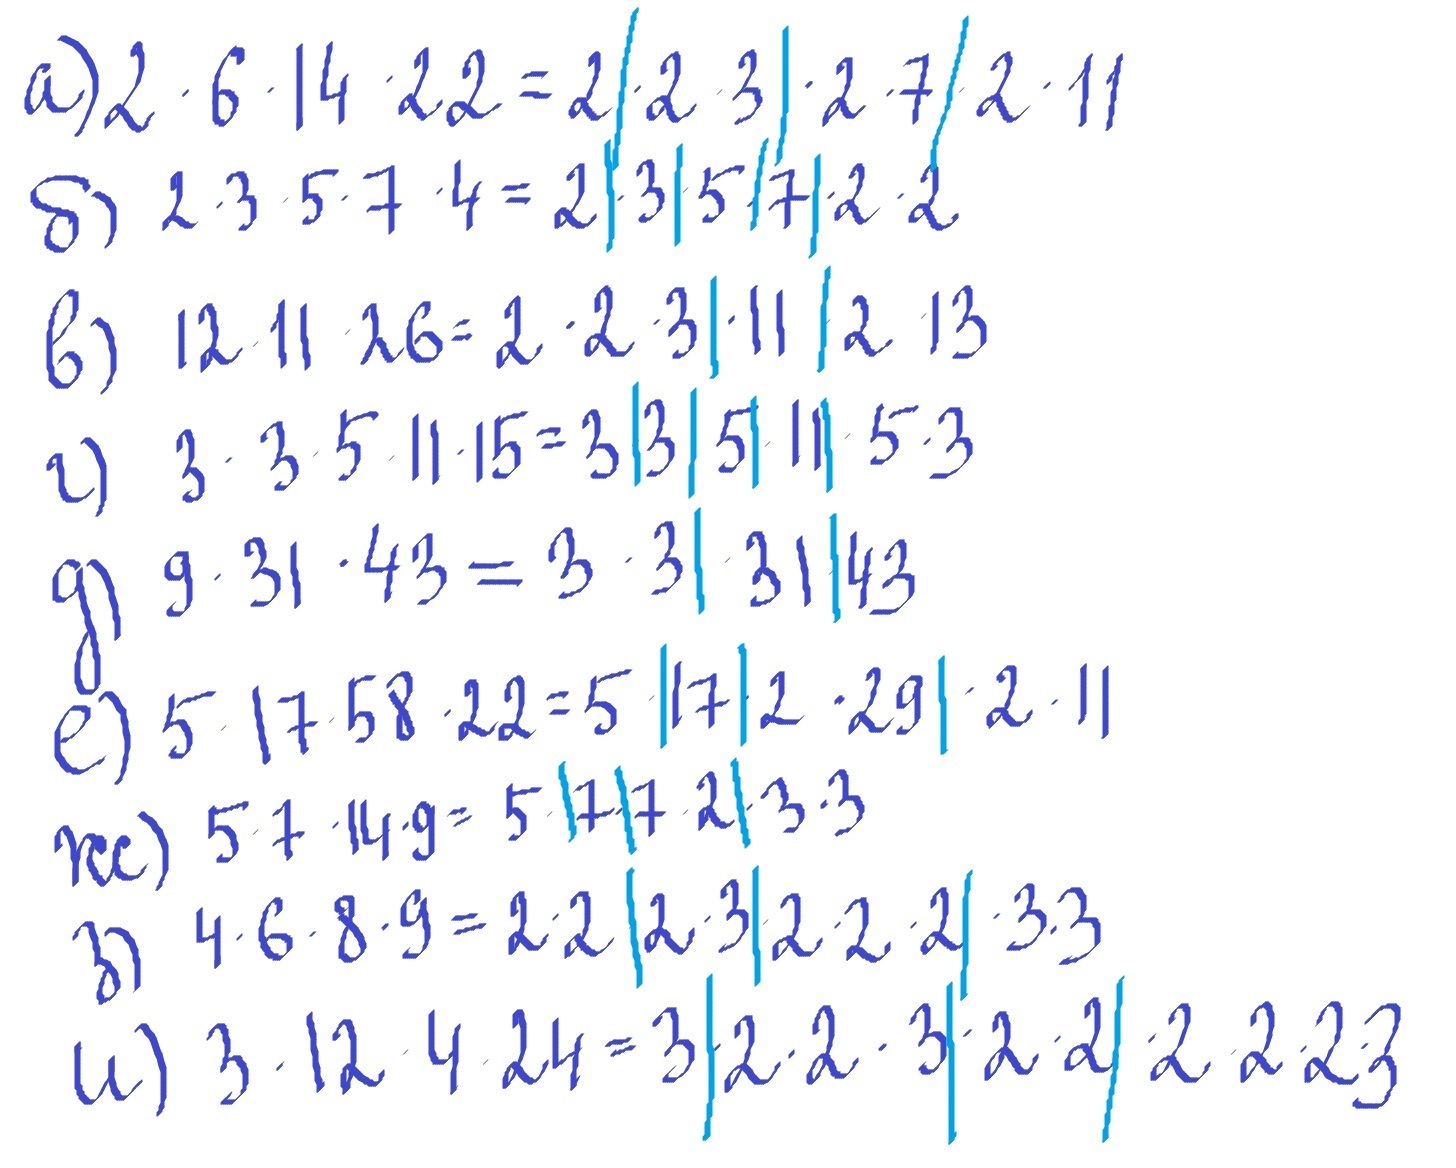 а) 2 · 6 · 14 · 22 = 2 / · 2 · 3 | · 2 · 7 / 2 · 11
б) 2 · 3 · 5 · 7 · 4 = 2 | · 3 | · 5 / 7 | · 2 · 2
в) 12 · 11 · 26 = 2 · 2 · 3 | · 11 / 2 · 13
г) 3 · 3 · 5 · 11 · 15 = 3 | 3 | 5 | · 11 | · 5 · 3
д) 9 · 31 · 43 = 3 · 3 | 31 | 43
е) 5 · 17 · 58 · 22 = 5 · | 17 | 2 · 29 | · 2 · 11
ж) 5 · 7 · 14 · 9 = 5 · | 7 | 7 · 2 | · 3 · 3
з) 4 · 6 · 8 · 9 = 2 · 2 | 2 · 3 | 2 · 2 · 2 | · 3 · 3
и) 3 · 12 · 4 · 24 = 3 | · 2 · 2 · 3 | · 2 · 2 / · 2 · 2 · 2 · 3